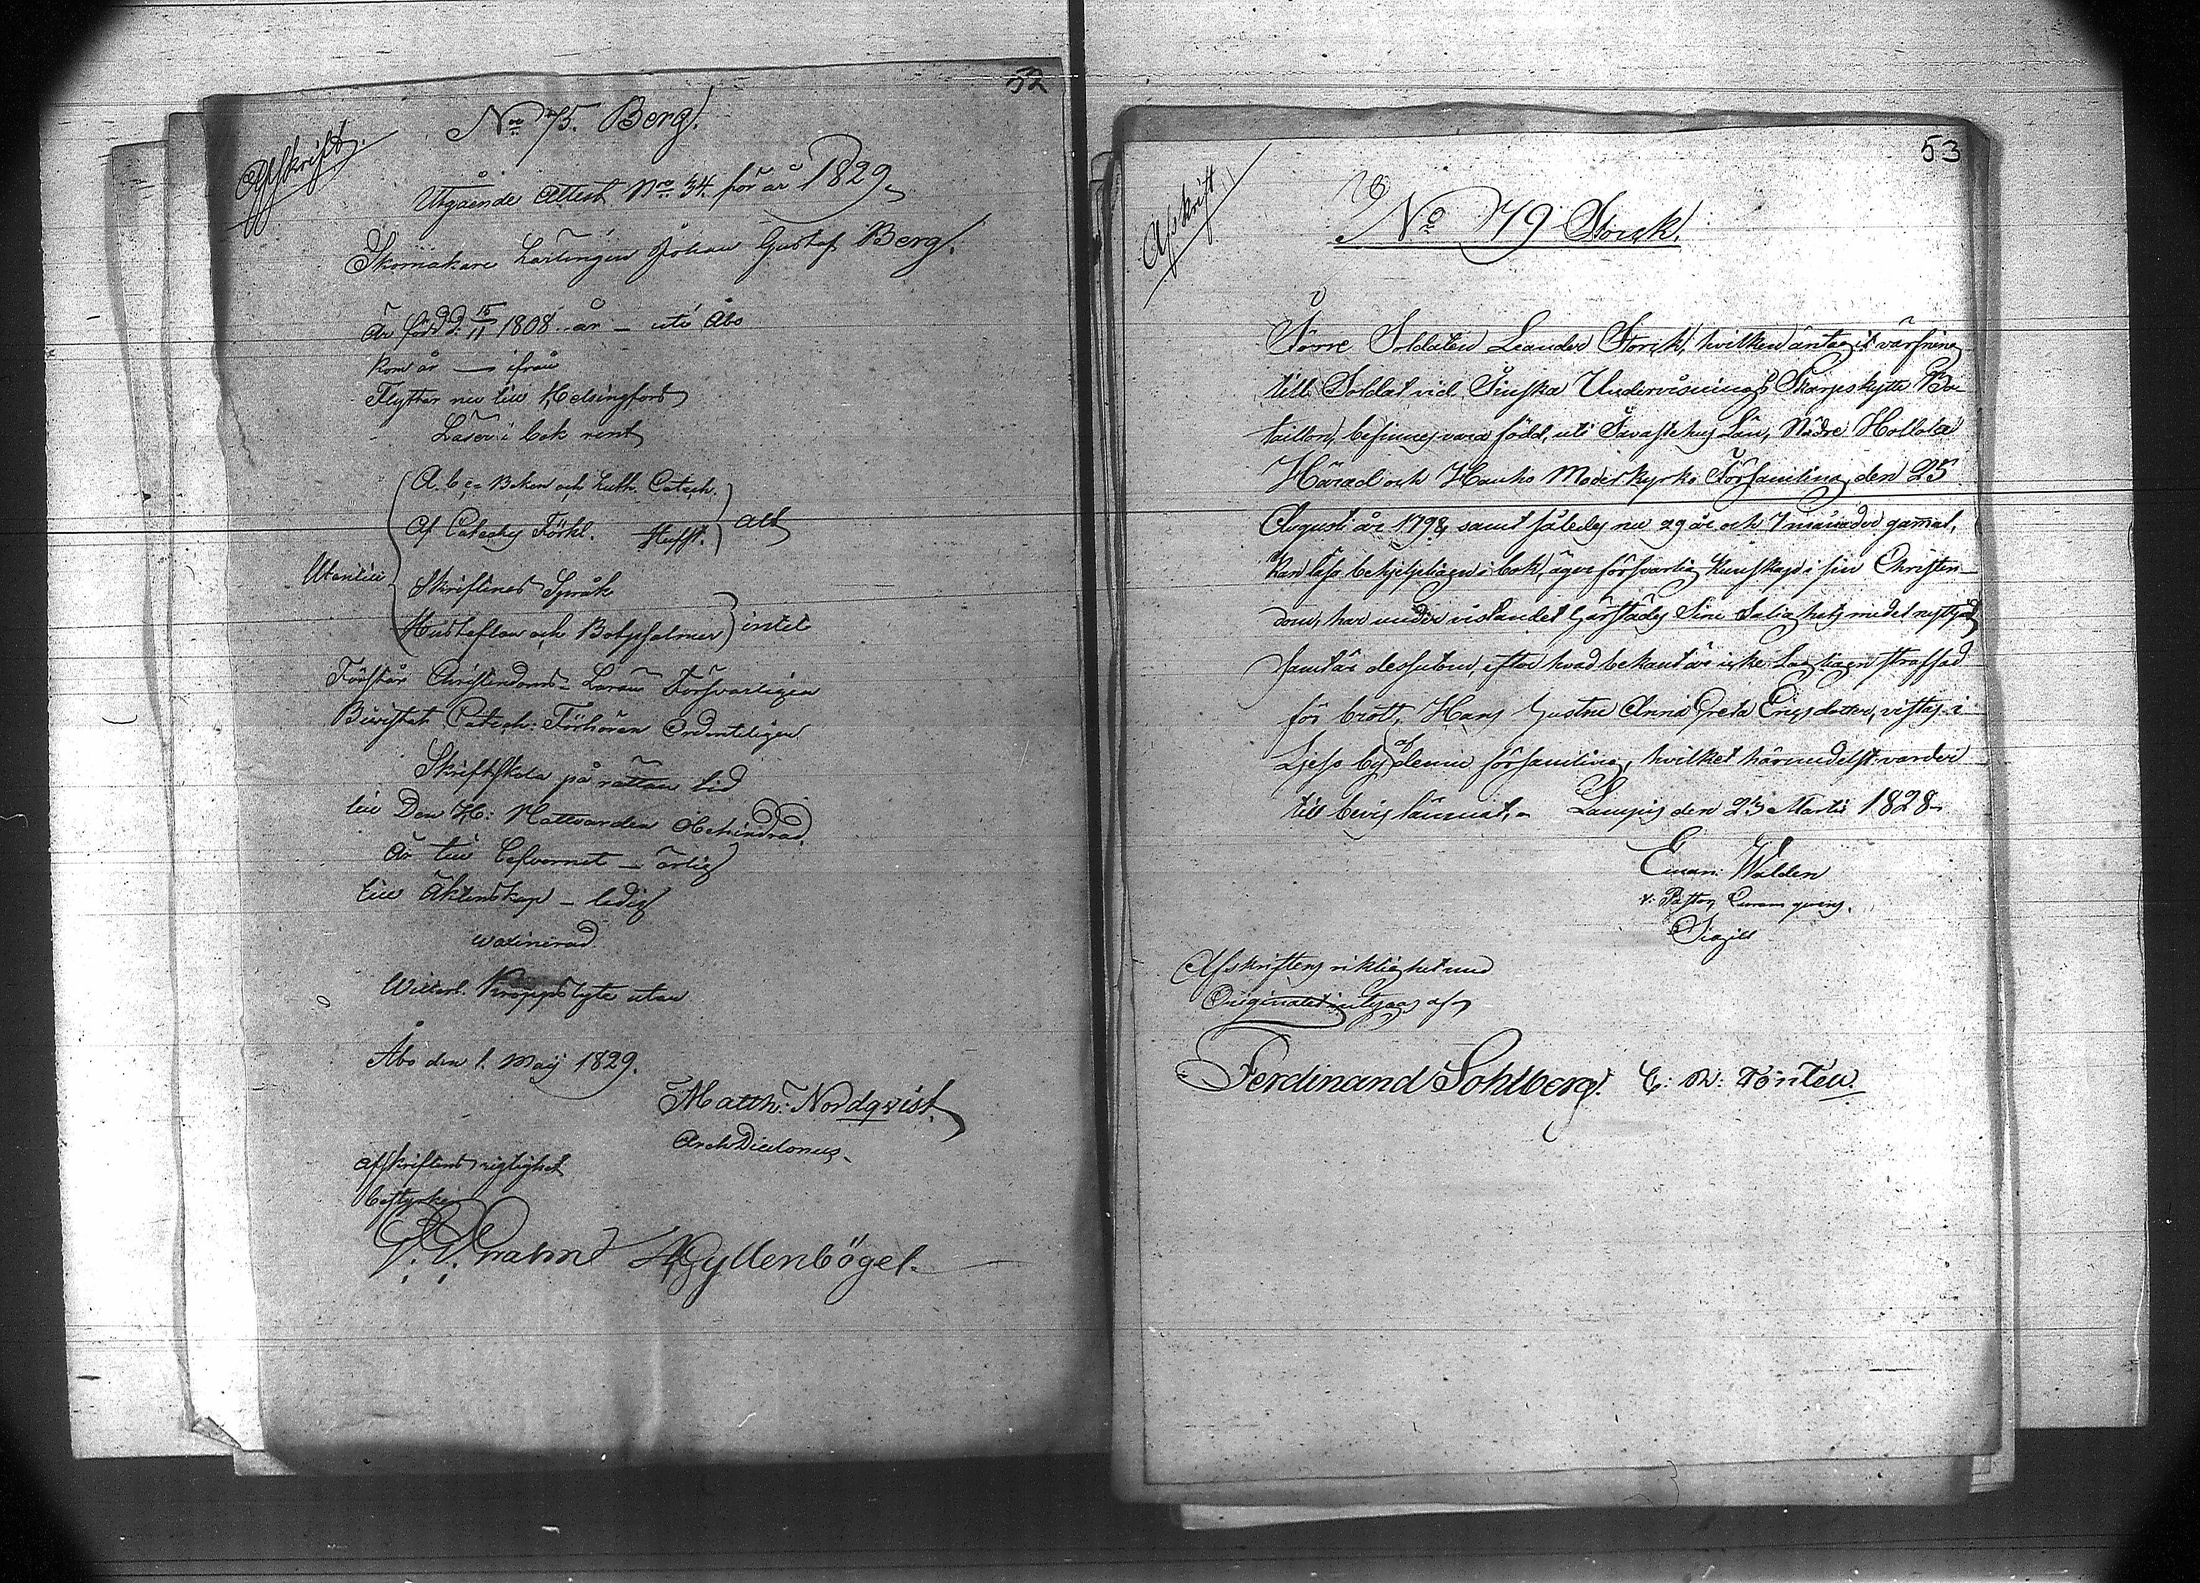 52
Afskrift.
No 75. Berg.
Utgående Attest Nro 34. för år 1829.
Skomakare Lärlingen Johan Gustaf Berg.
Är född d. 15/11 1808 år – uti Åbo
kom år — ifrån
Flyttar nu till Helsingfors
Läser i bok rent
A. b. c. Boken och Luth. Catech.
Af Catechs Förkl. Hufst. allt
Utantill
Skriftenes Språk
Hustaflan och Botpsalmer intet
Förstår Christendoms Läran Försvarligen
Biwistat Catech: Förhören Ordenteligen
Skriftskola på rättan tid
till Den H: Nattvarden Obehindrad,
Är till Lefvernet – ärlig
till Äktenskap – ledig
waxinerad
Kroppslyte utan
Åbo den 1. Maij 1829.
Matth: Nordqvist
ArchDiaconus.
Afskriftens rigtighet
bestyrka
Gyllenbögel.
53
Afskrift
No 79 Storck.
Förre Soldaten Leander Storck, hvilken antagit värfning
till Soldat vid Finska Undervisnings Skarpskytte Ba-
taillon, befinnes vara född, uti Tavastehus Län, Nedre Hollola
Härad och Hauho Moderkyrko Församling, den 25
Augusti år 1798, samt således nu 29 år och 7 månader gammal,
kan läsa behjelpligen i bok, äger försvarlig kunskap i sin Christen-
dom, har under vistandet härstädes sine Salighets medel nyttjat
samt är dessutom, efter hvad bekant är icke Lagligen straffad
för brott. Hans hustru Anna Greta Ericsdotter, vistas i
by af denna församling, hvilket härmedelst varder
till bevis lämnat. Lampis den 23 Martii 1828
Eman: Walden
v: Pastor,
Sigill
Afskriftens riktighet med
Originalet intyga af
Ferdinand Sohlberg.